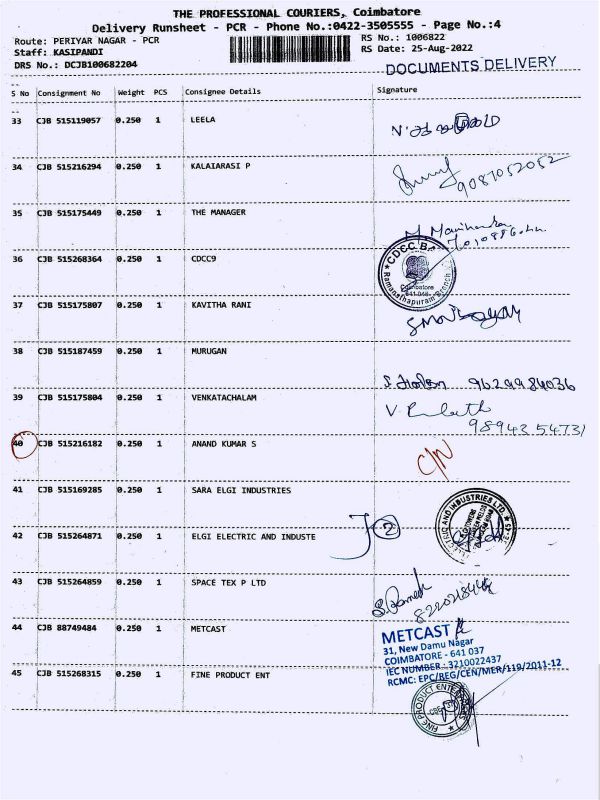 THE PROFESSIONAL COURIERS, Coimbatore
Delivery Runsheet - PCR - Phone No.:0422-3505555 - Page No.:4
Route: PERIYAR NAGAR - PCR
RS No.: 1006822
Staff: KASIPANDI
RS Date: 25-Aug-2022
DRS No.: DCJB100682204
DOCUMENTS DELIVERY
S No Consignment No Weight PCS Consignee Details Signature
33 CJB 515119057 0.250 1 LEELA
34 CJB 515216294 0.250 1 KALAIARASI P
9087052052
35 CJB 515175449 0.250 1 THE MANAGER
36 CJB 515268364 0.250 1 CDCC9
CDCC B
Coimbatore
641 045
Ramanathapuram Branch
37 CJB 515175807 0.250 1 KAVITHA RANI
38 CJB 515187459 0.250 1 MURUGAN
9629984036
39 CJB 515175804 0.250 1 VENKATACHALAM
V
98943 54731
40 CJB 515216182 0.250 1 ANAND KUMAR S C/N
41 CJB 515169285 0.250 1 SARA ELGI INDUSTRIES
ELECTRIC AND INDUSTRIES LTD.
42 CJB 515264871 0.250 1 ELGI ELECTRIC AND INDUSTE 2
43 CJB 515264859 0.250 1 SPACE TEX P LTD
S. Ramesh
44 CJB 88749484 0.250 1 METCAST
METCAST
31, New Damu Nagar
COIMBATORE - 641 037
IEC NUMBER : 3210022437
RCMC: EPC/REG/CEN/MER/119/2011-12
45 CJB 515268315 0.250 1 FINE PRODUCT ENT
FINE PRODUCT ENTERPRISES
CBE-37